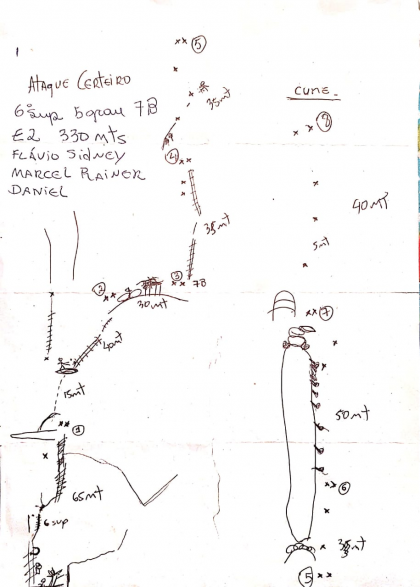 ATAQUE CERTEIRO
6ºsup 5ºgrau 7B
E2 330 MTS
FLÁVIO SIDNEY
MARCEL RAINER
DANIEL
xx 5
35mt
4
35mt
3
7B
2
30mt
40mt
15mt
1
65mt
6 sup
CUME
8
40mt
5mt
7
50mt
6
5